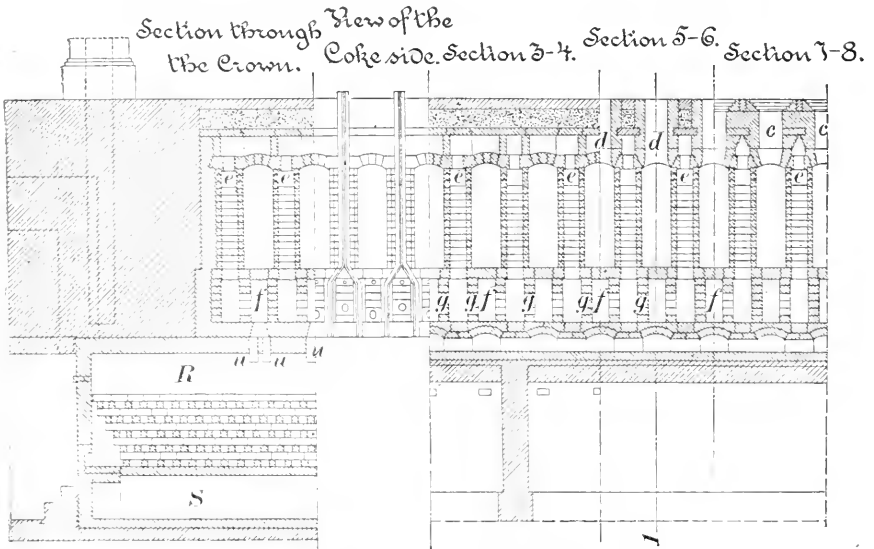 Section through
the Crown.
View of the
Coke side.
Section 3-4.
Section 5-6.
Section 7-8.
d d c c
e e e e e e
f g g f g g f g f
u u u
R
S
1